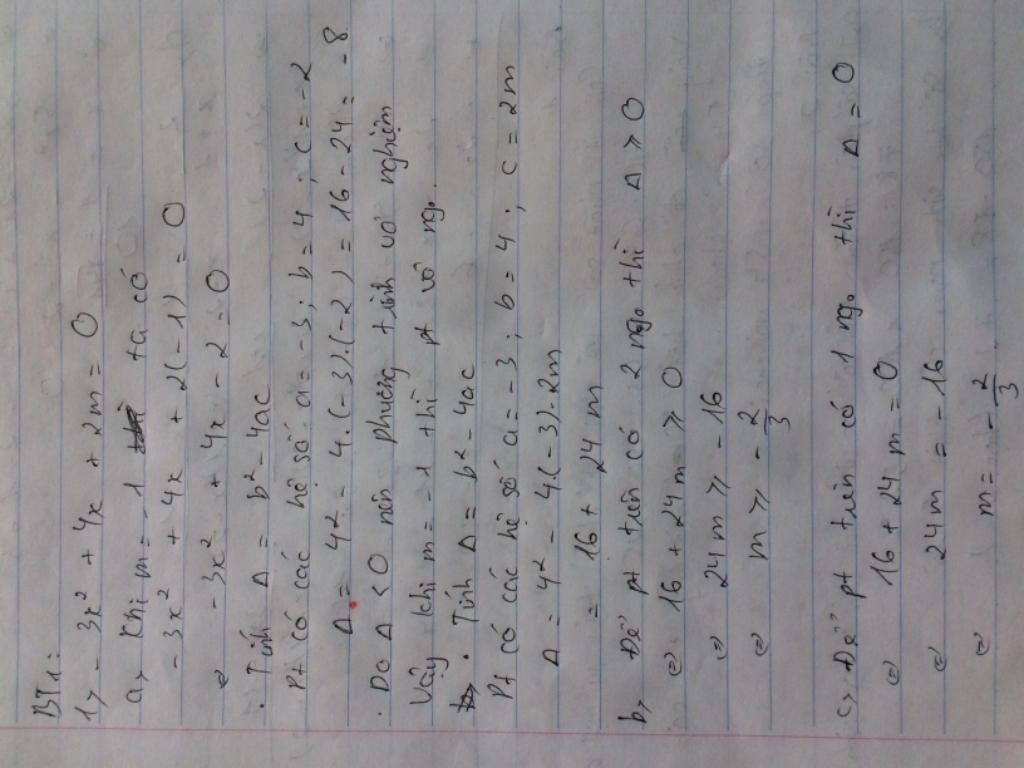 BT1:
1, - 3x² + 4x + 2m = 0
a, Khi m = - 1 ta có
- 3x² + 4x + 2(-1) = 0
⇔ - 3x² + 4x - 2 = 0
. Tính Δ = b² - 4ac
Pt có các hệ số a = -3 ; b = 4 ; c = -2
Δ = 4² - 4.(-3).(-2) = 16 - 24 = - 8
. Do Δ < 0 nên phương trình vô nghiệm
Vậy khi m = -1 thì pt vô ng₀.
. Tính Δ = b² - 4ac
Pt có các hệ số a = -3 ; b = 4 ; c = 2m
Δ = 4² - 4.(-3).2m
= 16 + 24m
b, Để pt trên có 2 ng₀ thì Δ ≥ 0
⇔ 16 + 24m ≥ 0
⇔ 24m ≥ - 16
⇔ m ≥ - 2/3
c, Để pt trên có 1 ng₀ thì Δ = 0
⇔ 16 + 24m = 0
⇔ 24m = - 16
⇔ m = - 2/3